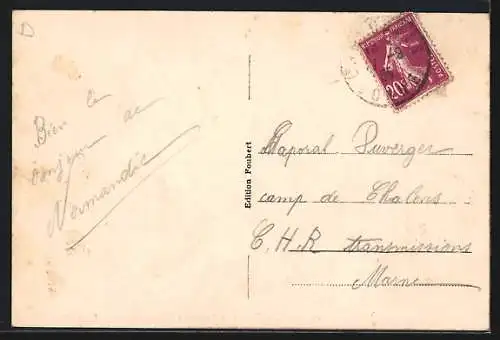 D
Bien le
bonjour de
Normandie
Edition Foubert
20c
Caporal Duverger
camp de Chalons
C.H.R. transmissions
Marne